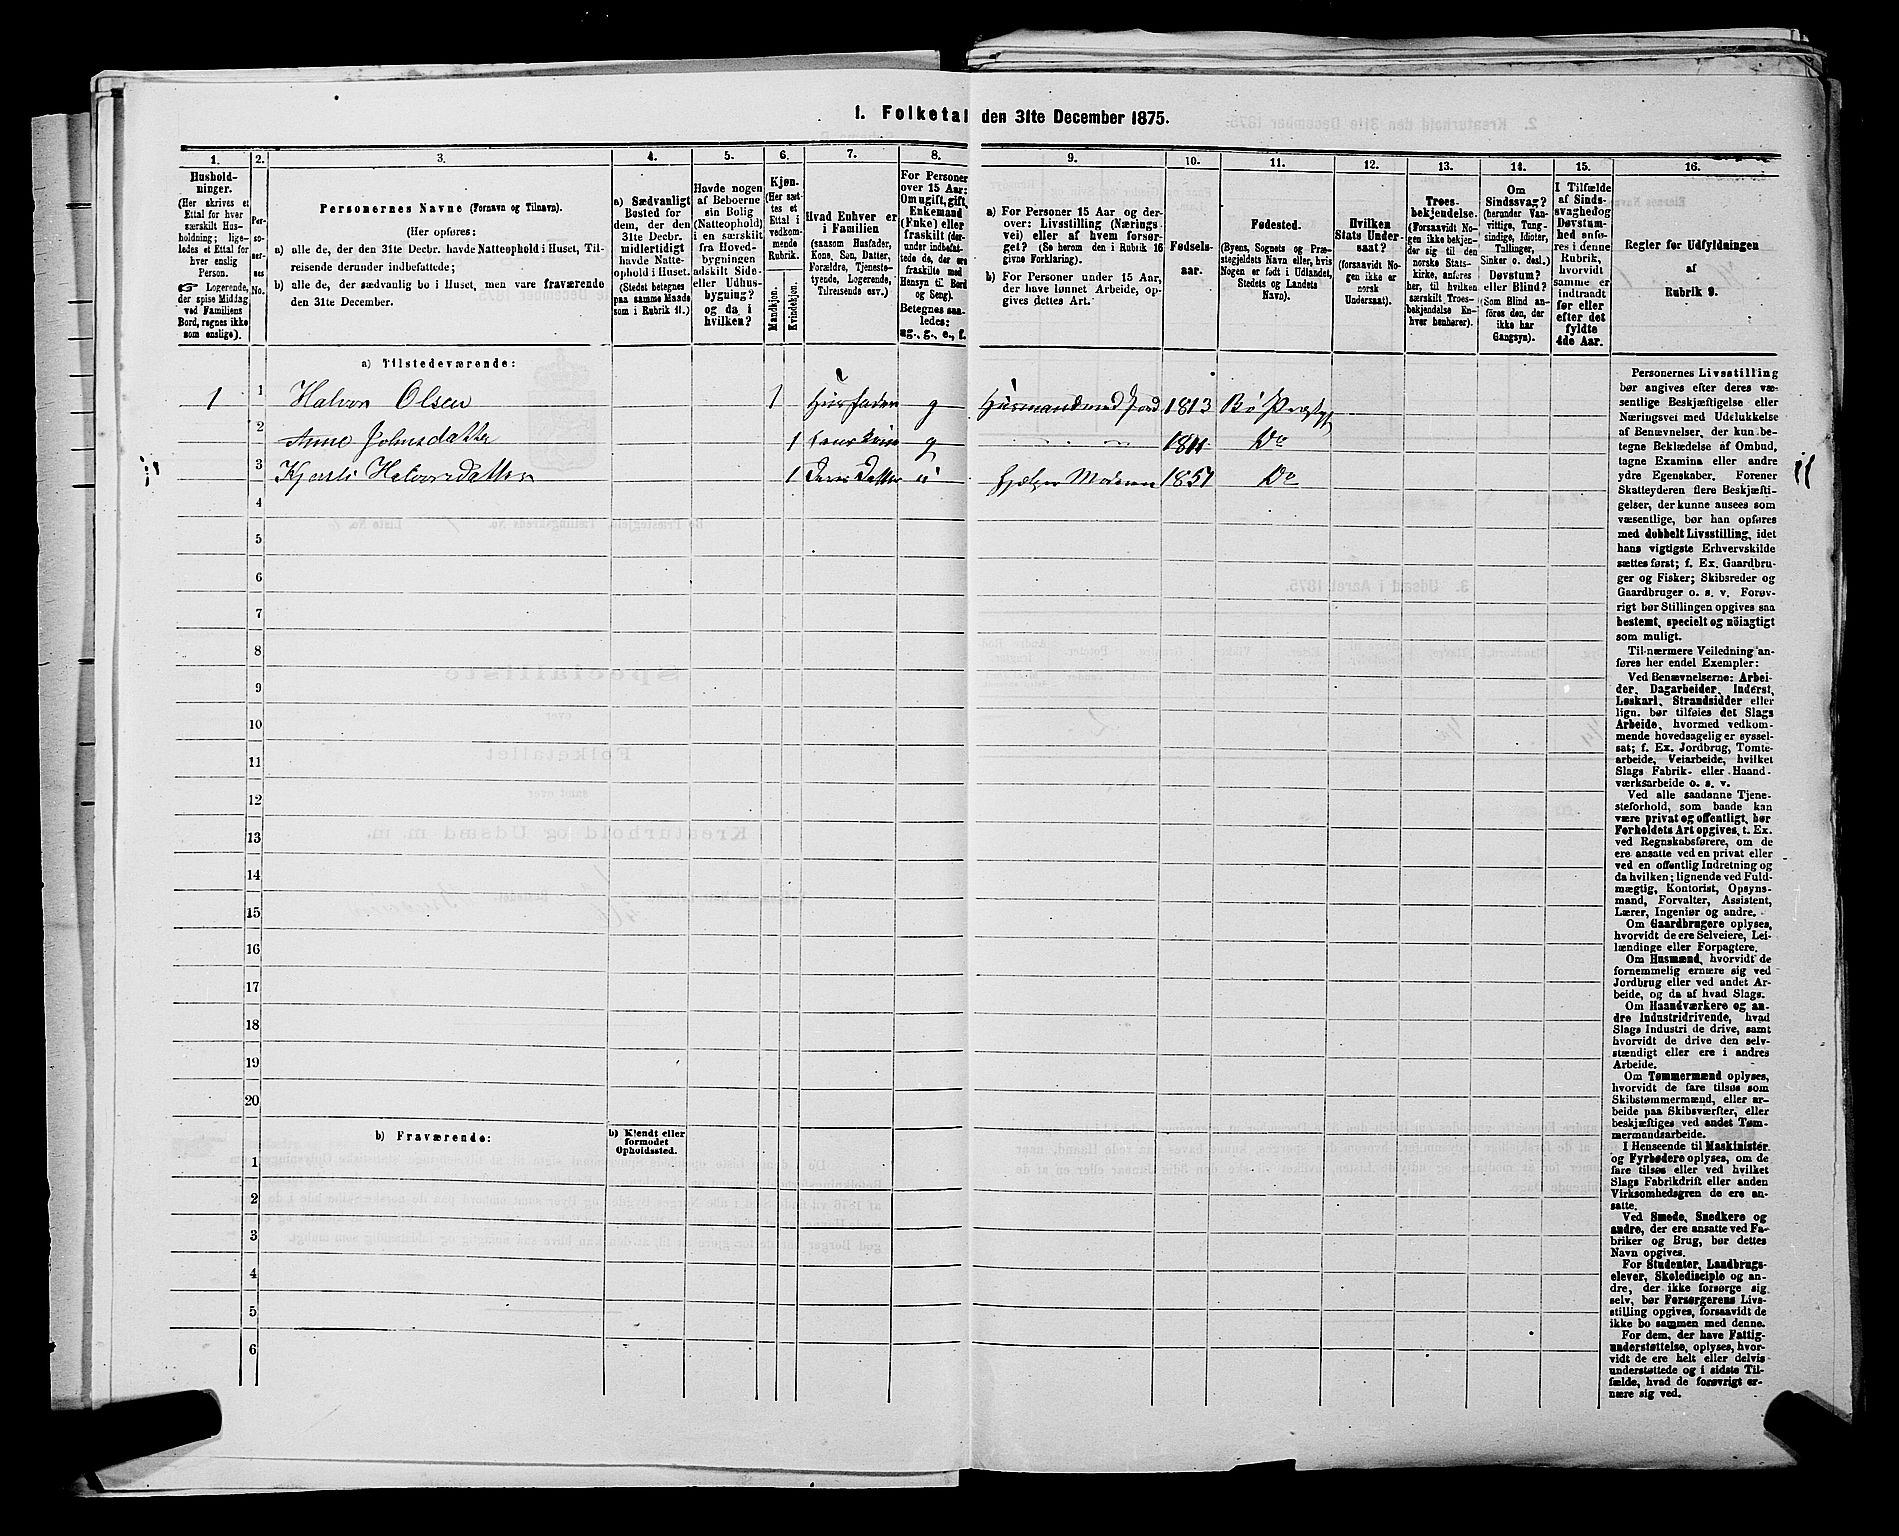 1. Folketal den 31te December 1875.
1.
Hushold-
ninger.
(Her skrives et
Ettal for hver
særskilt Hus-
holdning; lige-
ledes et Ettal for
hver enslig
Person.
☞ Logerende,
der spise Middag
ved Familiens
Bord, regnes ikke
som enslige).
2.
Per-
so-
ner-
nes
No.
3.
Personernes Navne (Fornavn og Tilnavn).
(Her opføres:
a) alle de, der den 31te Decbr. havde Natteophold i Huset, Til-
reisende derunder indbefattede;
b) alle de, der sædvanlig bo i Huset, men vare fraværende
den 31te December.
4.
a) Sædvanligt
Bosted for
dem, der den
31te Decbr.
midlertidigt
havde Natte-
ophold i Huset.
(Stedet betegnes
paa samme Maade
som i Rubrik 11.)
5.
Havde nogen
af Beboerne
sin Bolig
(Natteophold)
i en særskilt
fra Hoved-
bygningen
adskilt Side-
eller Udhus-
bygning?
og da i
hvilken?
6.
Kjøn.
(Her sæt-
tes et
Ettal i
vedkom-
mende
Rubrik.
Mandkjøn.
Kvindekjøn.
7.
Hvad Enhver er
i Familien
(saasom Husfader,
Kone, Søn, Datter,
Forældre, Tjeneste-
tyende, Logerende,
Tilreisende osv.)
8.
For Personer
over 15 Aar:
Om ugift, gift,
Enkemand
(Enke) eller
fraskilt (der-
under indbefat-
tede de, der ere
fraskilte med
Hensyn til Bord
og Seng).
Betegnes saa-
ledes:
ug., g., e., f.
9.
a) For Personer 15 Aar og der-
over: Livsstilling (Nærings-
vei) eller af hvem forsør-
get? (Se herom den i Rubrik 16
givne Forklaring).
b) For Personer under 15 Aar,
der have lønnet Arbeide, op-
gives dettes Art.
10.
Fødsels-
aar.
11.
Fødested.
(Byens, Sognets og Præ-
stegjeldets Navn eller, hvis
Nogen er født i Udlandet,
Stedets og Landets
Navn).
12.
Hvilken
Stats Under-
saat?
(forsaavidt No-
gen ikke er
norsk
Undersaat).
13.
Troes-
bekjendelse.
(Forsaavidt No-
gen ikke bekjen-
der sig til den
norske Stats-
kirke, anføres
her, til hvilken
særskilt Troes-
bekjendelse En-
hver henhører).
14.
Om
Sindssvag?
(herunder Van-
vittige, Tung-
sindige, Idioter,
Tullinger,
Sinker o. desl.)
Døvstum?
eller Blind?
(Som Blind an-
føres den, der
ikke har
Gangsyn).
15.
I Tilfælde
af Sinds-
svaghed og
Døvstum-
hed anfø-
res i denne
Rubrik,
hvorvidt
samme er
indtraadt
før eller
efter det
fyldte
4de Aar.
16.
Regler for Udfyldningen
af
Rubrik 9.
a) Tilstedeværende:
1 1 Halvor Olsen 1 Husfader g Husmand med Jord 1813 Bø Præstgj
2 Anne Johnsdatter 1 g 1811 Do
3 Halvorsdatter 1 Deres Datter u hjelper Moderen 1851 Do
4
5
6
7
8
9
10
11
12
13
14
15
16
17
18
19
20
b) Fraværende:
b) Kjendt eller
formodet
Opholdssted.
1
2
3
4
5
6
Personernes Livsstilling
bør angives efter deres væ-
sentlige Beskjæftigelse eller
Næringsvei med Udelukkelse
af Benævnelser, der kun be-
tegne Beklædelse af Ombud,
tagne Examina eller andre
ydre Egenskaber. Forener
Skatteyderen flere Beskjæfti-
gelser, der kunne ansees som
væsentlige, bør han opføres
med dobbelt Livsstilling, idet
hans vigtigste Erhvervskilde
sættes først; f. Ex. Gaardbru-
ger og Fisker; Skibsreder og
Gaardbruger o. s. v. Forøv-
rigt bør Stillingen opgives saa
bestemt, specielt og nöiagtigt
som muligt.
Til nærmere Veiledning an-
føres her endel Exempler:
Ved Benævnelserne: Arbei-
der, Dagarbeider, Inderst,
Løskarl, Strandsidder eller
lign. bør tilføies det Slags
Arbeide, hvormed vedkom-
mende hovedsagelig er syssel-
sat; f. Ex. Jordbrug, Tomte-
arbeide, Veiarbeide, hvilket
Slags Fabrik- eller Haand-
værksarbeide o. s. v.
Ved alle saadanne Tjene-
steforhold, som baade kan
være privat og offentligt, bør
Forholdets Art opgives, t. Ex.
ved Regnskabsførere, om de
ere ansatte ved en privat eller
ved en offentlig Indretning og
da hvilken; lignende ved Fuld-
mægtig, Kontorist, Opsyns-
mand, Forvalter, Assistent,
Lærer, Ingeniør og andre.
Om Gaardbrugere oplyses,
hvorvidt de ere Selveiere, Lei-
lændinge eller Forpagtere.
Om Husmænd, hvorvidt de
fornemmelig ernære sig ved
Jordbrug eller ved andet Ar-
beide, og da af hvad Slags.
Om Haandværkere og an-
dre Industridrivende, hvad
Slags Industri de drive, samt
hvorvidt de drive den selv-
stændigt eller ere i andres
Arbeide.
Om Tømmermænd oplyses,
hvorvidt de fare tilsøs som
Skibstømmermænd, eller ar-
beide paa Skibsværfter, eller
beskjæftiges ved andet Tøm-
mermandsarbeide.
I Henseende til Maskinister
og Fyrbødere oplyses, om de
fare tilsøs eller ved hvilket
Slags Fabrikdrift eller anden
Virksomhedsgren de ere an-
satte.
Ved Smede, Snedkere og
andre, der ere ansatte ved Fa-
briker og Brug, bør dettes
Navn opgives.
For Studenter, Landbrugs-
elever, Skoledisciple og an-
dre, der ikke forsørge sig
selv, bør Forsørgerens Livs-
stilling opgives, forsaavidt de
ikke bo sammen med denne.
For dem, der have Fattig-
understøttelse, oplyses, hvor-
vidt de ere helt eller delvis
understøttede og i sidste Til-
fælde, hvad de forøvrigt er-
nære sig ved.